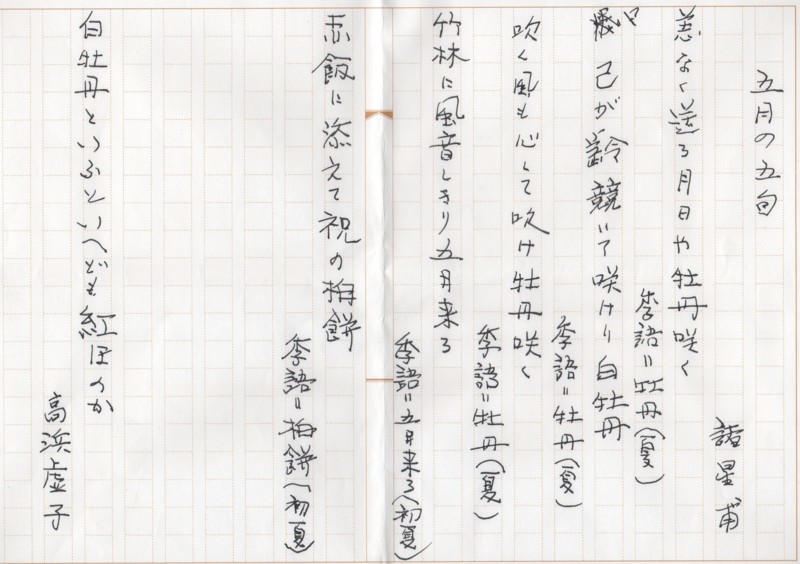 五月の五句
星甫
恙なく送る月日や牡丹咲く
季語=牡丹(夏)
己が齢競いて咲けり白牡丹
季語=牡丹(夏)
吹く風も心して吹け牡丹咲く
季語=牡丹(夏)
竹林に風音しきり五月来る
季語=五月来る(初夏)
赤飯に添えて祝の柏餅
季語=柏餅(初夏)
白牡丹といふといへども紅ほのか
高浜虚子